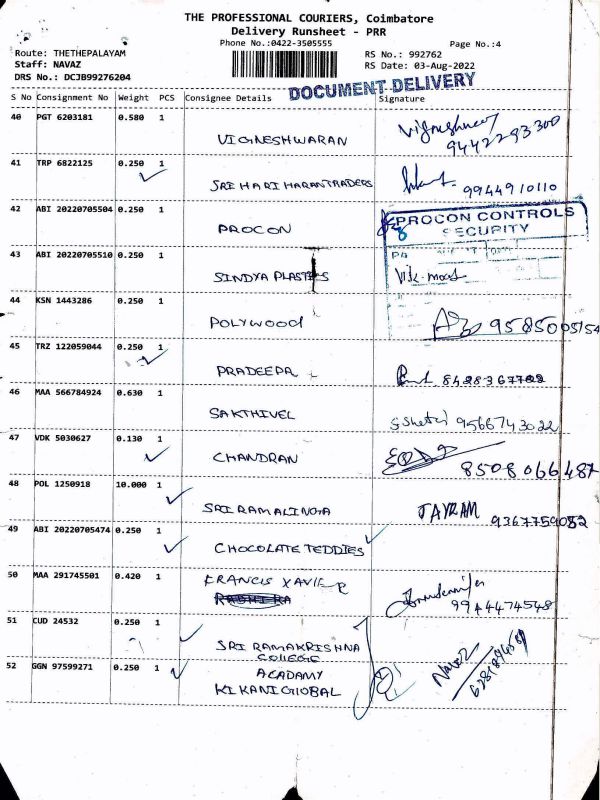 THE PROFESSIONAL COURIERS, Coimbatore
Delivery Runsheet - PRR
Phone No.:0422-3505555
Page No.:4
Route: THETHEPALAYAM
RS No.: 992762
Staff: NAVAZ
RS Date: 03-Aug-2022
DRS No.: DCJB99276204
DOCUMENT DELIVERY
S No Consignment No Weight PCS Consignee Details Signature
40 PGT 6203181 0.580 1 VIGNESHWARAN 9442293300
41 TRP 6822125 0.250 1 SRI HARI HARAN TRADERS 9944910110
42 ABI 20220705504 0.250 1 PROCON
PROCON CONTROLS
SECURITY
43 ABI 20220705510 0.250 1 SINDYA PLASTICS
44 KSN 1443286 0.250 1 POLYWOOD 9585005154
45 TRZ 122059044 0.250 1 PRADEEPA 8428367702
46 MAA 566784924 0.630 1 SAKTHIVEL 9566743022
47 VDK 5030627 0.130 1 CHANDRAN 8508066487
48 POL 1250918 10.000 1 SRI RAMALINGA JAYRAM 9367759082
49 ABI 20220705474 0.250 1 CHOCOLATE TEDDIES
50 MAA 291745501 0.420 1 FRANCIS XAVIER
9944474548
51 CUD 24532 0.250 1 SRI RAMAKRISHNA
COLLEGE
52 GGN 97599271 0.250 1 ACADAMY
KIKANI GLOBAL
Navaz